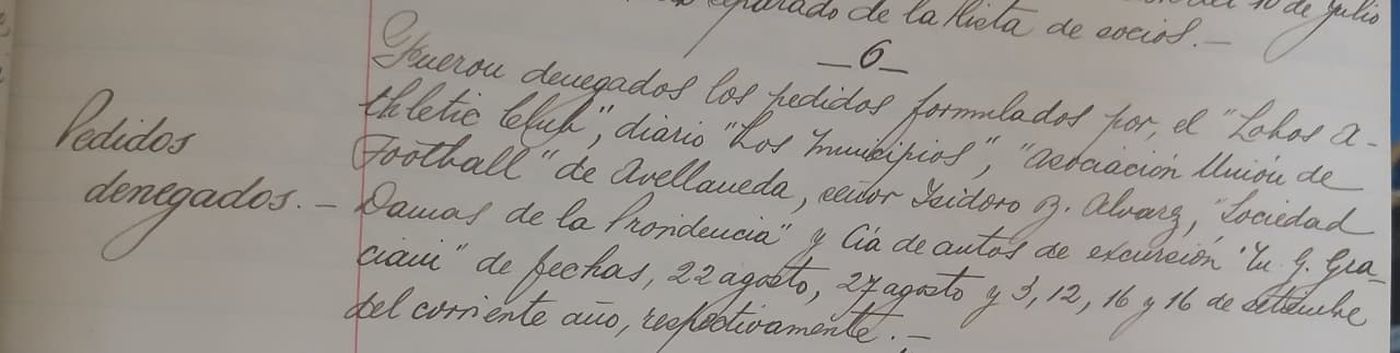 del 10 de julio
separado de la lista de socios.—
—6—
Fueron denegados los pedidos formulados por, el "Lobos A-
thletic Club", diario "Los Municipios", "Asociación Unión de
Football" de Avellaneda, señor Isidoro B. Alvarz, "Sociedad
Damas de la Providencia" y Cía de autos de excursión "G. Gra-
ciani" de fechas, 22 agosto, 27 agosto y 3, 12, 16 y 16 de setiembre
del corriente año, respectivamente.—
Pedidos
denegados.—